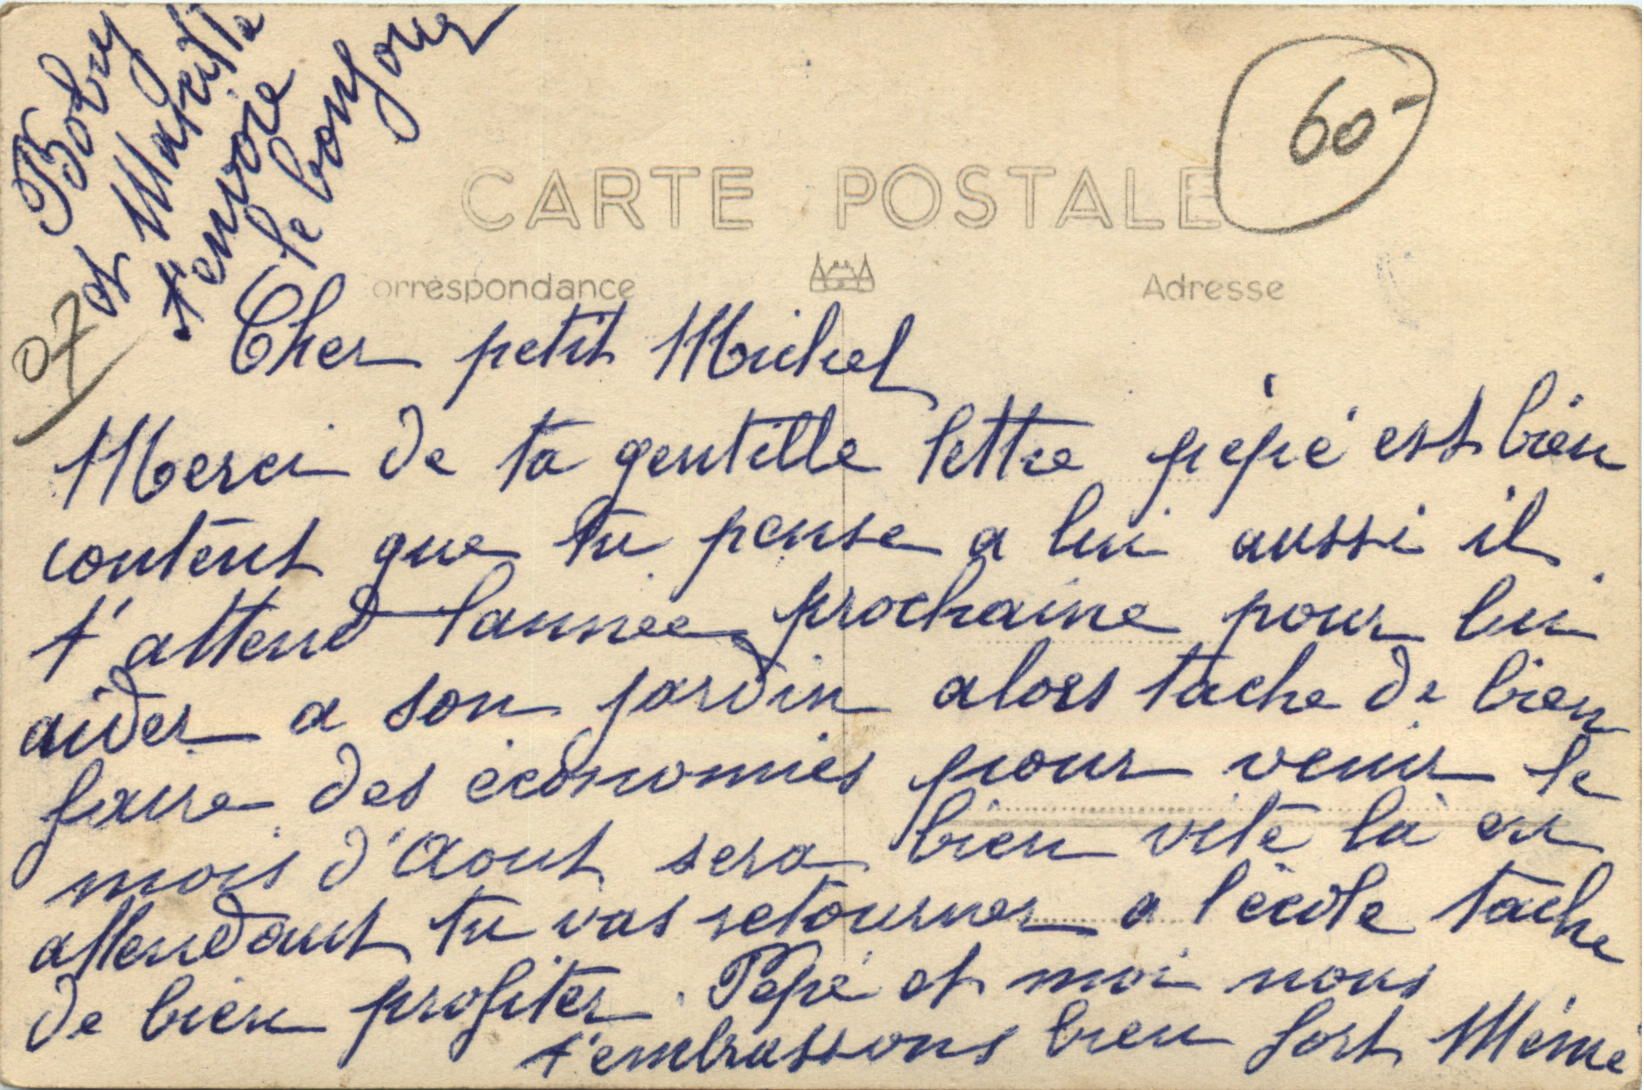 Boby
et Maritte
t'envoie
le bonjour
60-
CARTE POSTALE
orrespondance
Adresse
07
Cher petit Michel
Merci de ta gentille lettre pépé est bien
content que tu pense a lui aussi il
t'attend lannee prochaine pour lui
aider a son jardin alors tache de bien
faire des économies pour venir le
mois d'Aout sera bien vite la en
attendant tu vas retourner a l'école tache
de bien profiter. Pépé et moi nous
t'embrassons bien fort Mémé